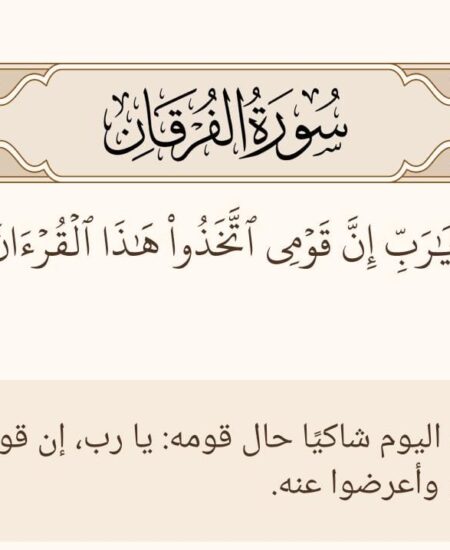 سُورَةُ الْفُرْقَانِ
يَٰرَبِّ إِنَّ قَوْمِى ٱتَّخَذُوا۟ هَٰذَا ٱلْقُرْءَانَ
اليوم شاكيًا حال قومه: يا رب، إن
وأعرضوا عنه.